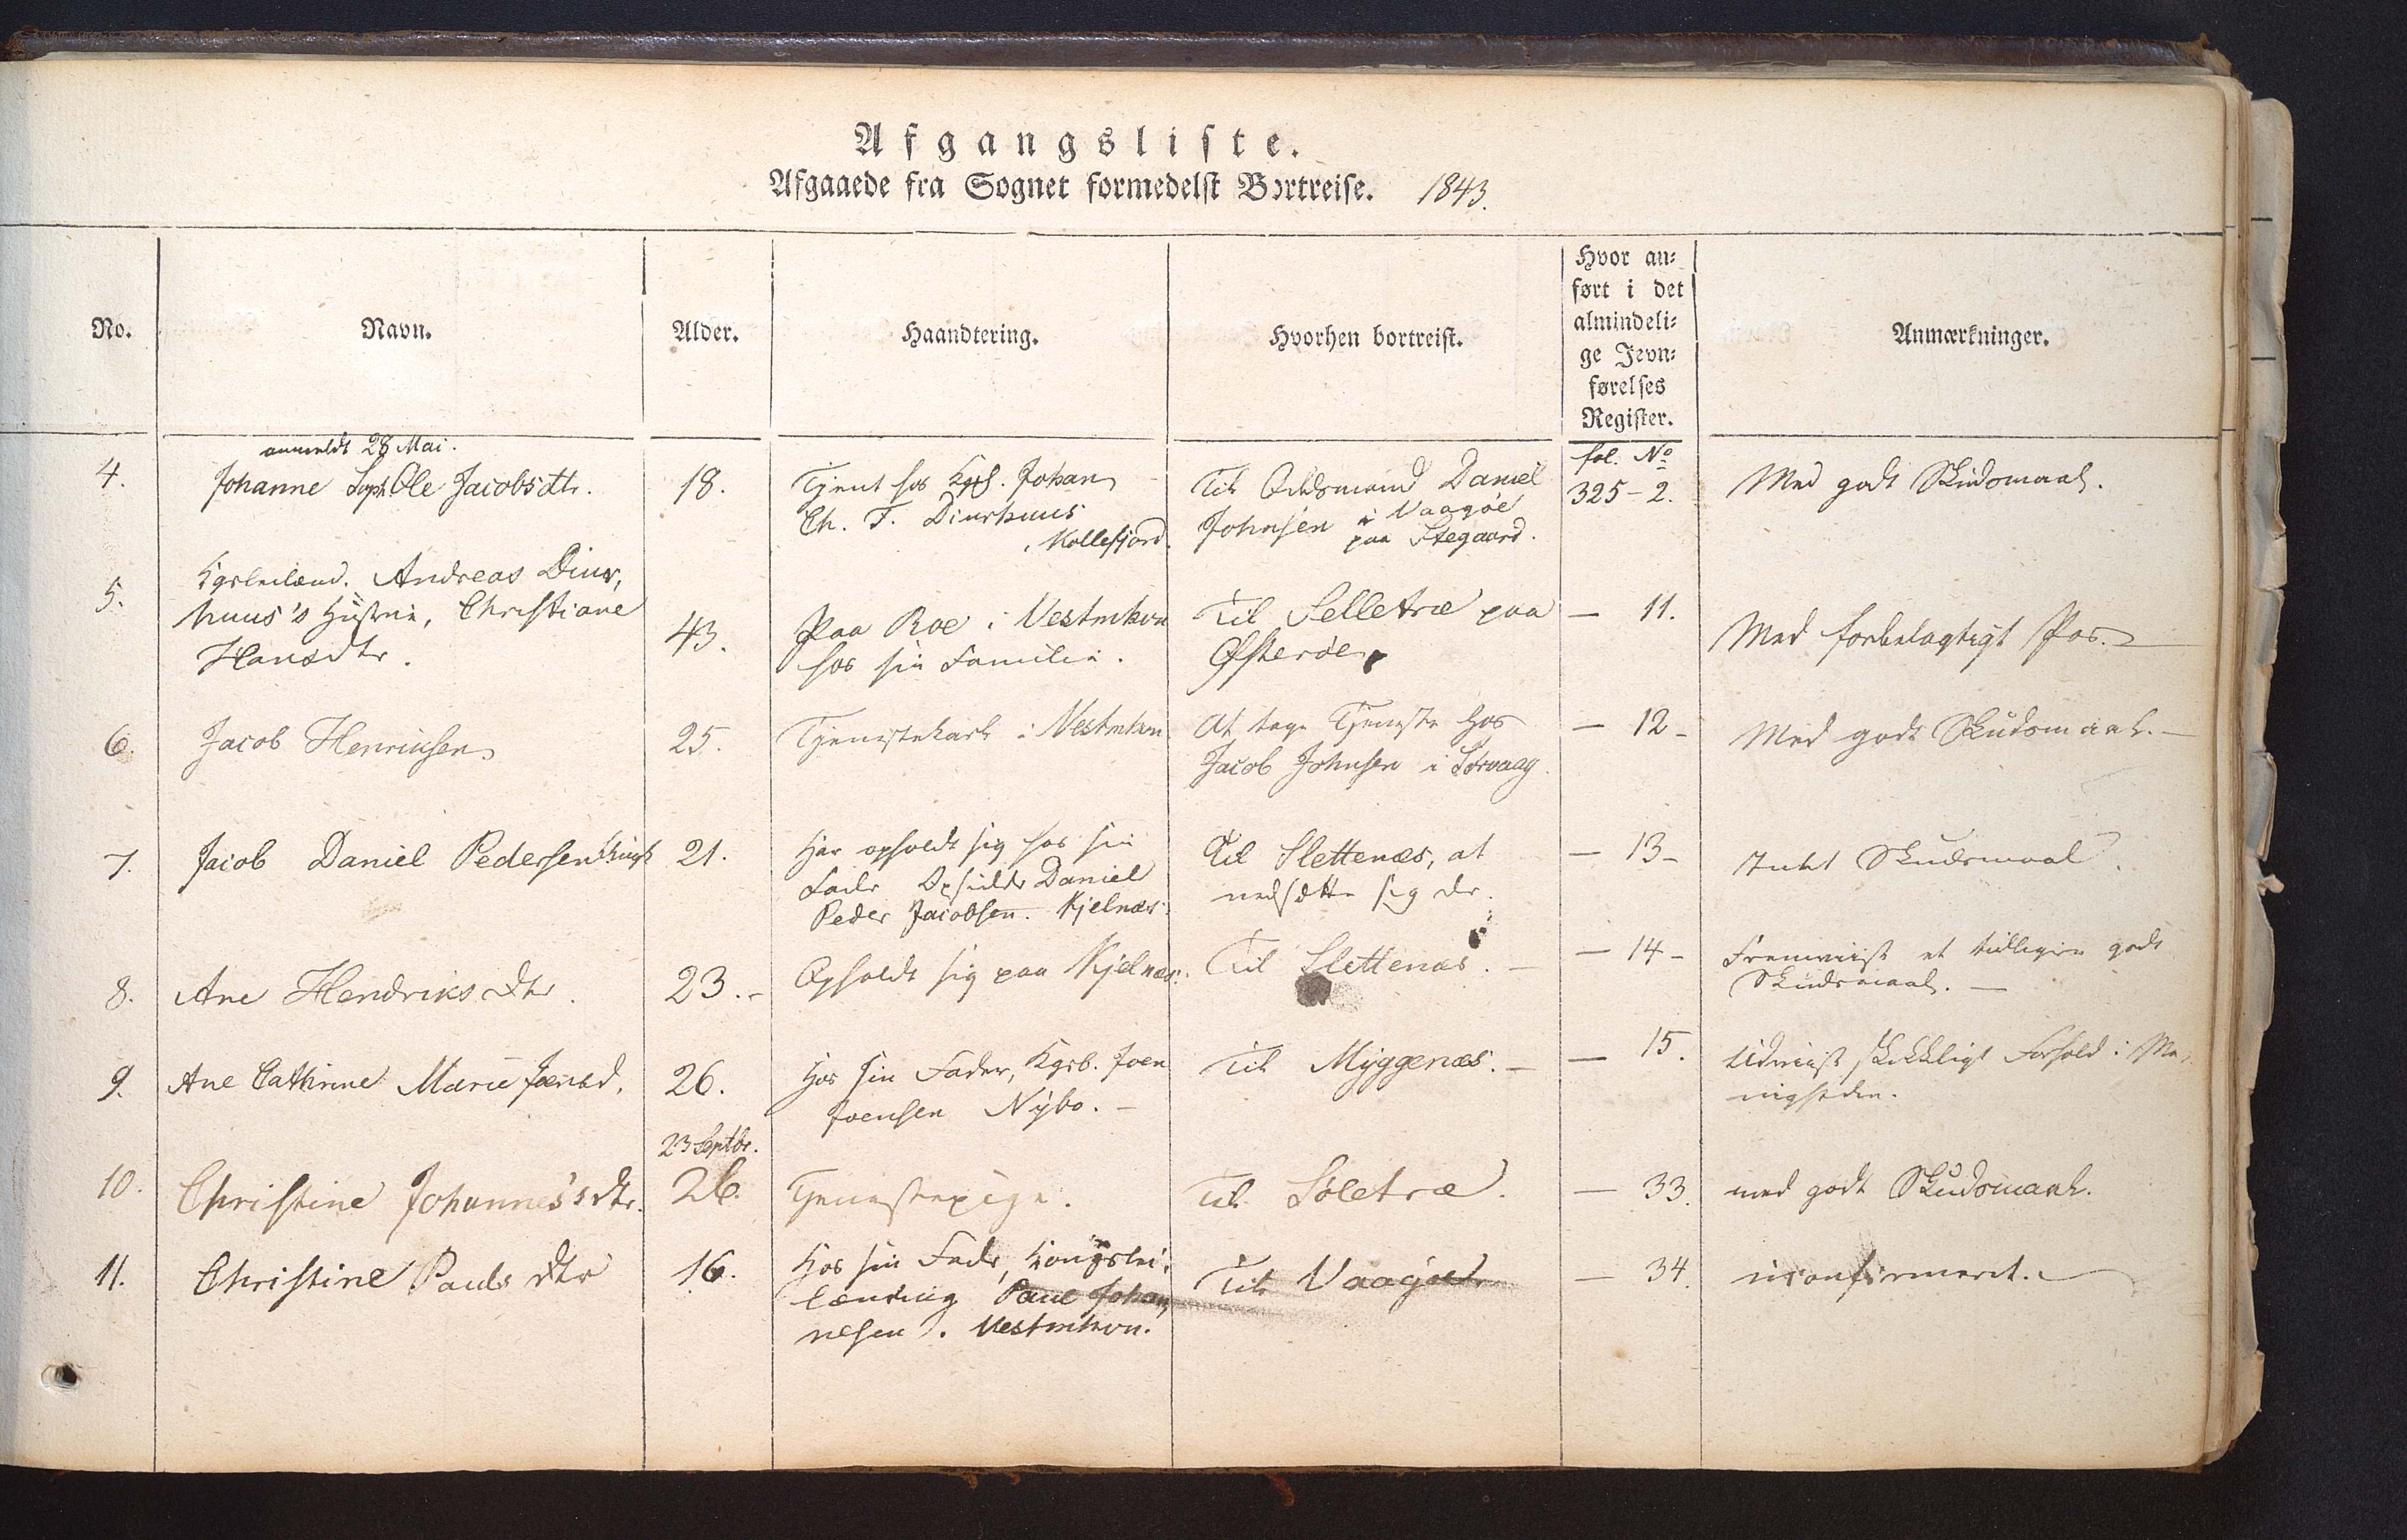 Afgangsliste.
Afgaaede fra Sognet formedelst Bortreise. 1843.
No.
Navn.
Alder.
Haandtering.
Hvorhen bortreist.
Hvor an-
ført i det
almindeli-
ge Jevn-
førelses
Register.
Anmærkninger.
anmeldt 28 Mai.
fol. No
4.
Johanne Soph. Ole Jacobsdtr.
18.
Tjent hos Kgsf. Johan
Ch. F. Diurhuus
i Kollefjord.
Til Odelsmand Daniel
Johnsen i Vaagøe
paa Stegaard.
325 - 2.
Med godt Skudsmaal.
5.
Kgsleilænd. Andreas Diur,
huus's Hustru, Christiane
Hansdtr.
43.
Paa Roe i Vestmhvn
hos sin Familie.
Til Selletræ paa
Østerøe.
— 11.
Med forbelagtigt Pas. —
6.
Jacob Henriksen
25.
Tjenestekarl i Vestmhvn
At tage Tjeneste hos
Jacob Johnsen i Sørvaag.
— 12 -
Med godt Skudsmaal. —
7.
Jacob Daniel Pedersen
21.
Har opholdt sig hos sin
Fader Opsidder Daniel
Peder Jacobsen. Kjelnæs.
Til Slettenæs, at
nedsætte sig der.
— 13 -
Intet Skudsmaal.
8.
Ane Hendriks dtr.
23. -
Opholdt sig paa Kjelnæs.
Til Slettenæs. —
— 14 -
Fremviist et tidligere godt
Skudsmaal. —
9.
Ane Cathrine Marie Joensd.
26.
Hos sin Fader, Kgsb. Joen
Joensen Nybo. —
Til Myggenæs. —
— 15.
Udviist skikkeligt Forhold i Me,
nigheden.
23 Septbr.
10.
Christine Johannes's dtr.
26.
Tjenestepige.
Til Søletræ.
— 33.
med godt Skudsmaal.
11.
Christine Pauls dtr
16.
Hos sin Fader, Kongslei,
lænding Paul Johan,
nesen. Vestmhvn.
Til Vaagøe
— 34.
uconfirmeret. —